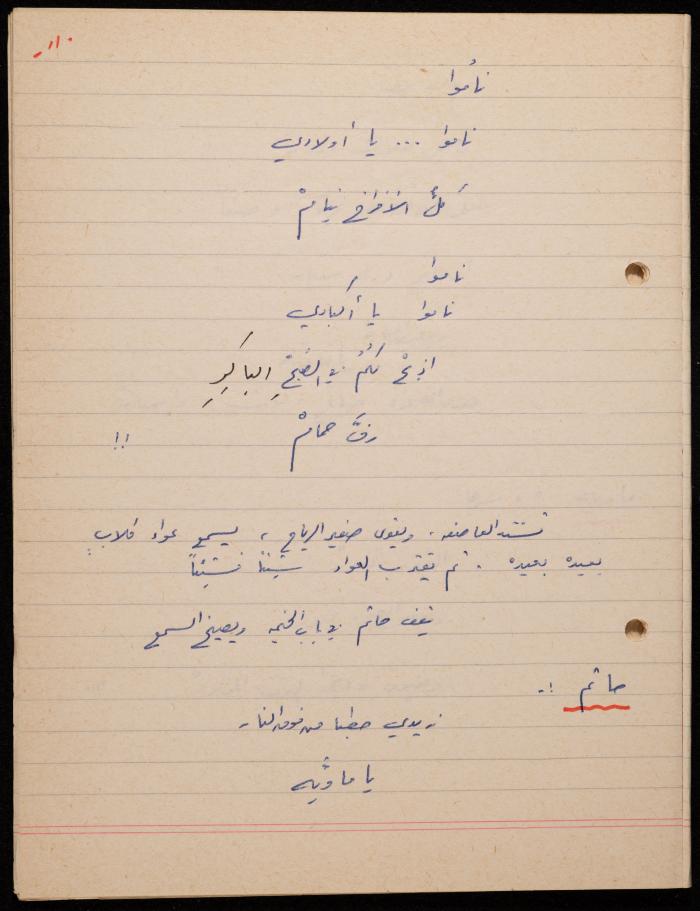 ناموا
ناموا ... يا أولادي
كلُّ الأفراخِ نيامْ
ناموا
ناموا يا أكبادي
اذبحْ لكُمُ في الصُبْحِ الباكِرِ
زوْجَ حمامْ !!
تشتد العاصفه، ويقوى صفير الرياح، يسمع عواء كلابٍ
بعيده بعيده . ثم يقترب العواء شيئاً فشيئاً
يقف حاتم في باب الخيمه ويصيخ السمع
حاتم :-
زيدي حطبا من فوق النار
يا ماويَّه